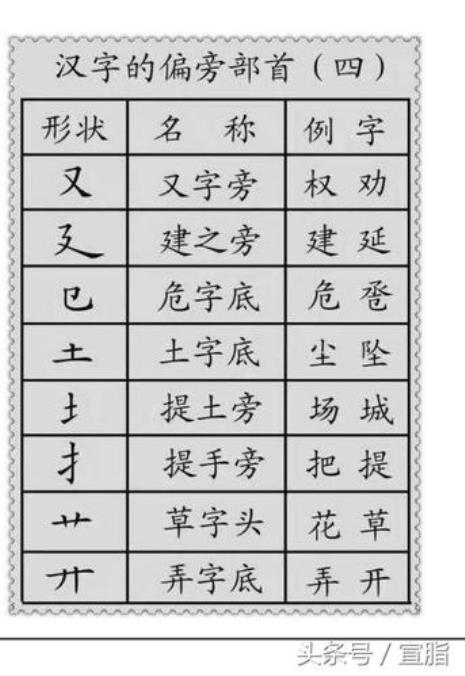 汉字的偏旁部首（四）
形状 名称 例字
又 又字旁 权劝
廴 建之旁 建延
㔾 危字底 危卺
土 土字底 尘坠
土 提土旁 场城
扌 提手旁 把提
艹 草字头 花草
廾 弄字底 弄开
头条号 / 宣脂